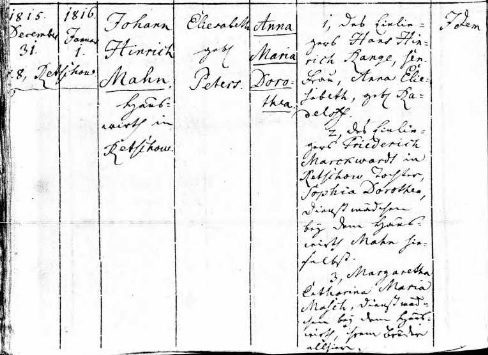 1815.
December
31.
n. 8, Retschow.
1816.
Januar
1.
Johann
Hinrich
Mahn,
Haus-
wirth in
Retschow.
Elisabeth
geb.
Peters.
Anna
Maria
Doro-
thea.
1, des Einlie-
gers Hans Hin-
rich Range, sen.
Frau, Anna Elie-
sabeth, geb. Ra-
deloff.
2, des Einlie-
gers Friederich
Marckwardt in
Retschow Tochter,
Sophia Dorothea,
Dienstmädchen
bey dem Haus-
wirth Mahn hie-
selbst.
3, Margaretha
Catharina Maria
Masch, Dienstmäd-
chen bey dem Haus-
wirth, ihrem Bruder
allhier.
Idem